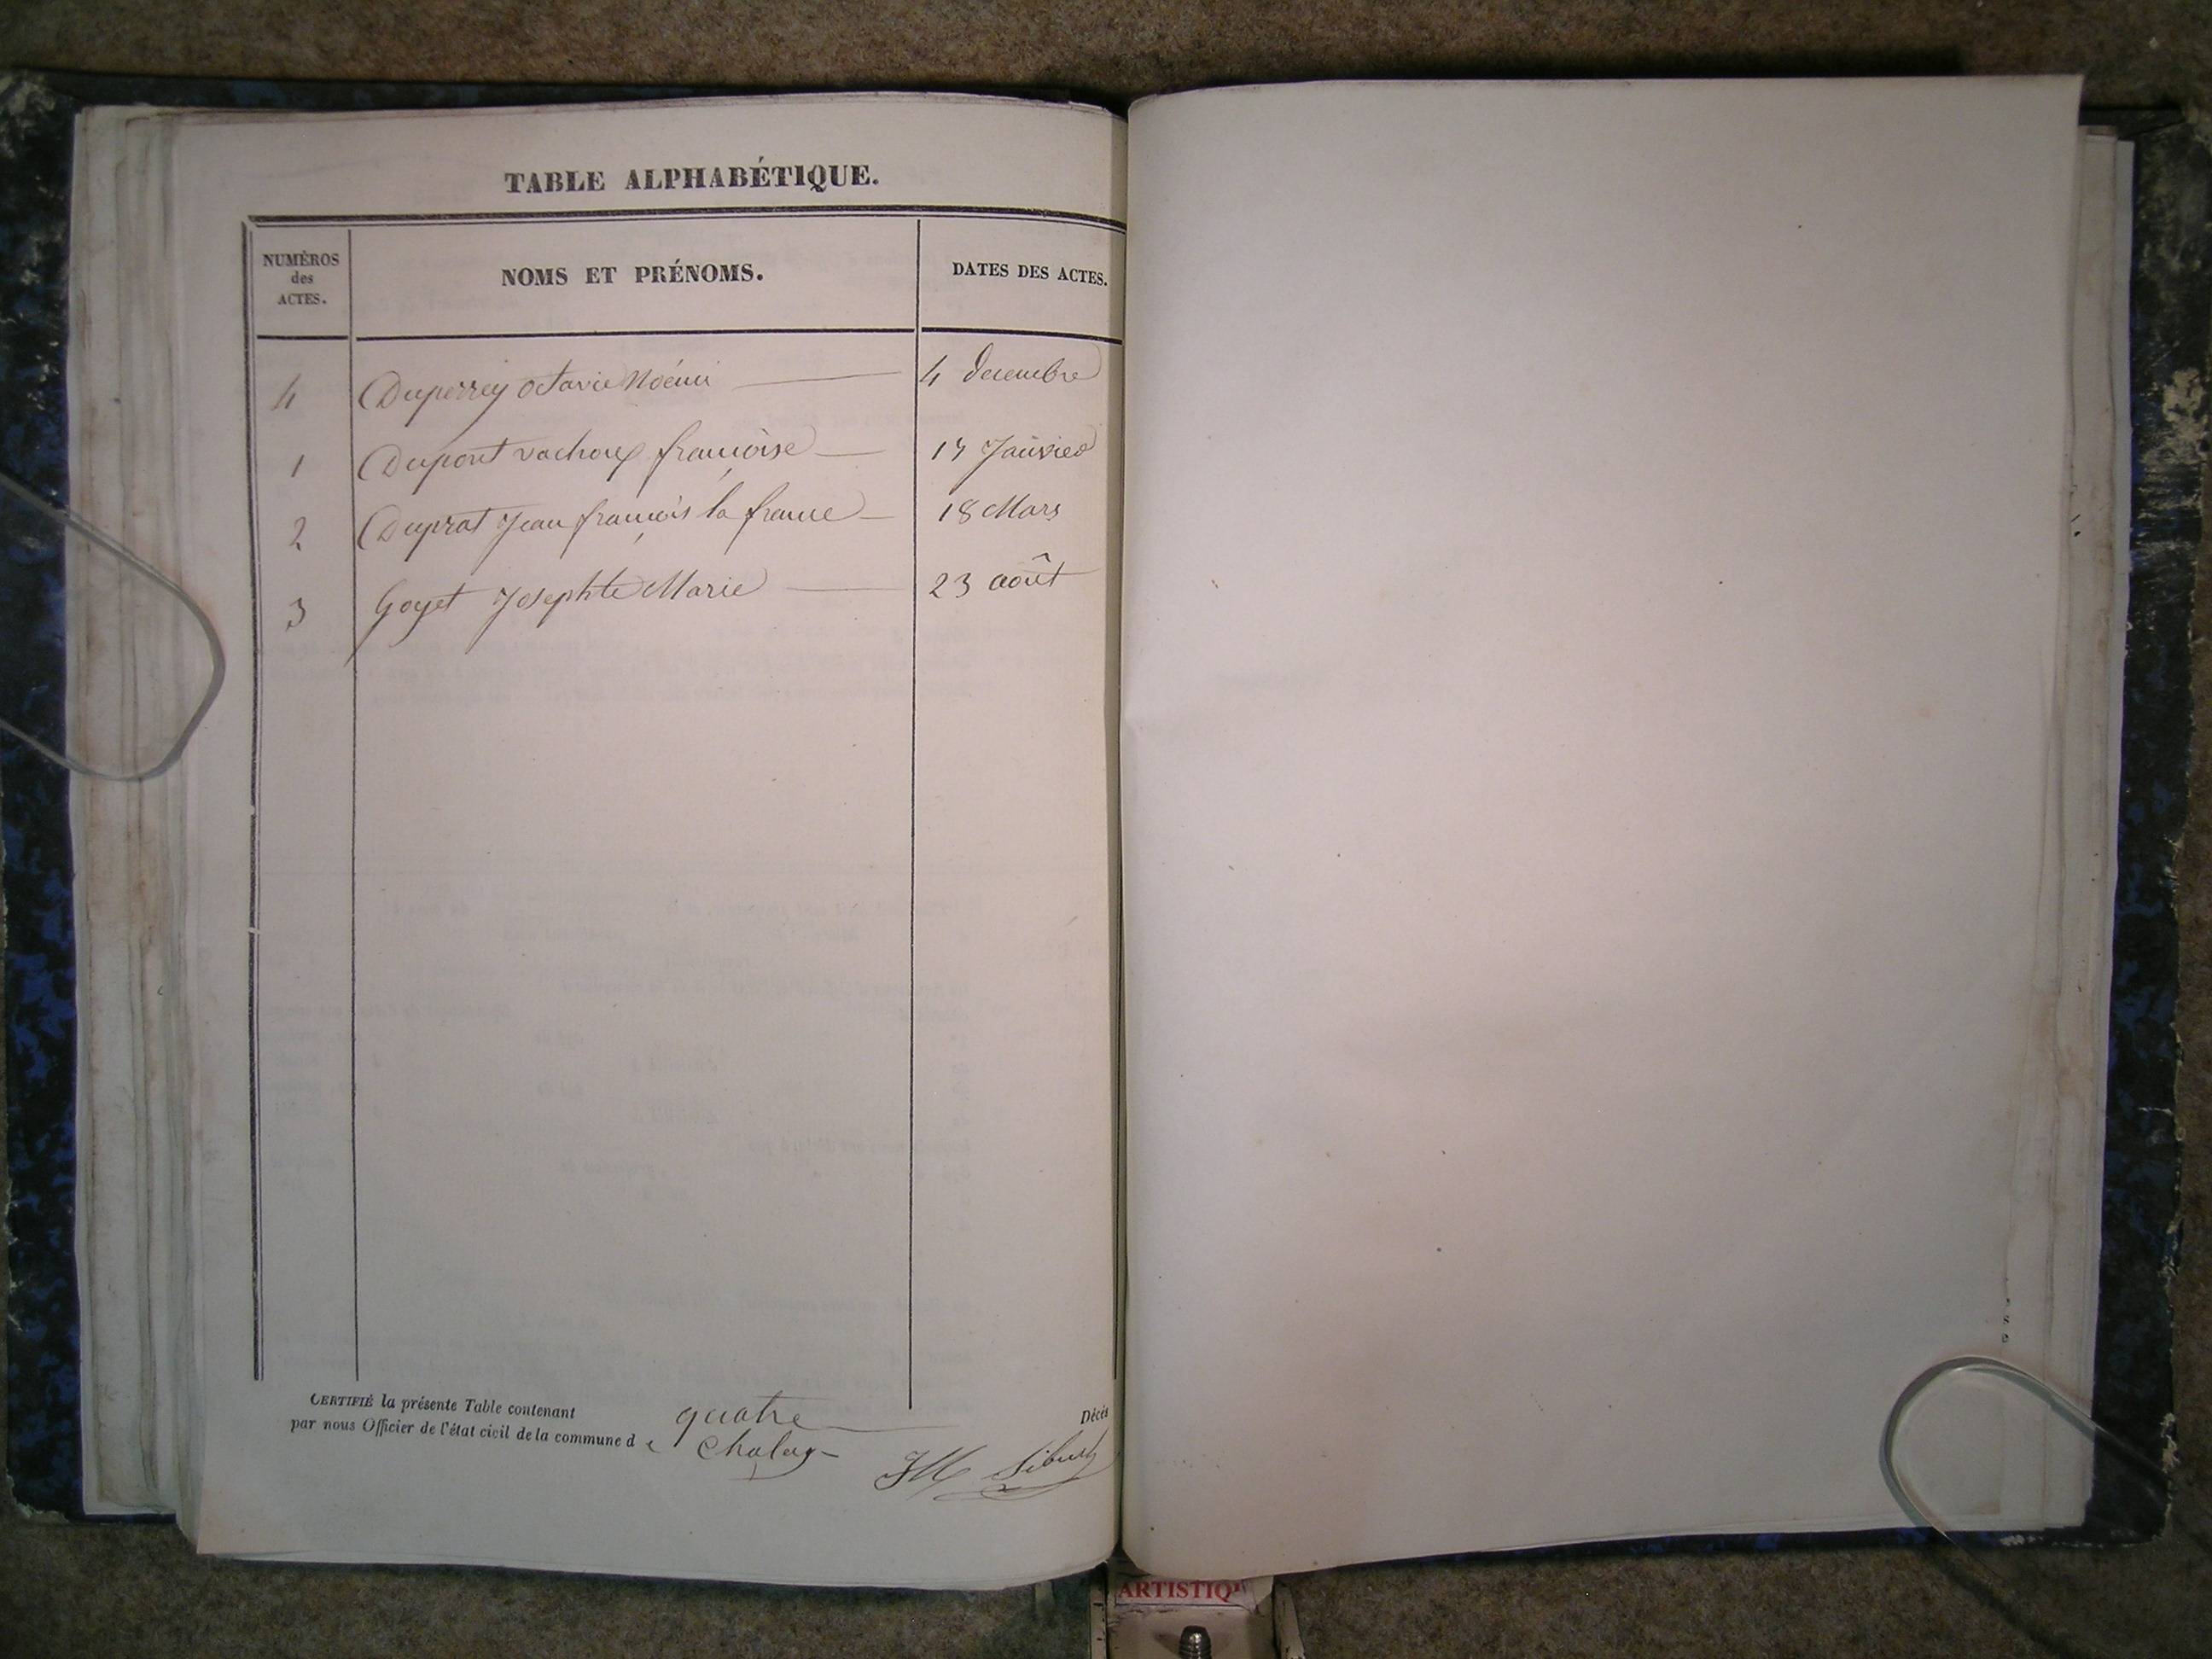 TABLE ALPHABÉTIQUE.
NUMÉROS
des
ACTES.
NOMS ET PRÉNOMS.
DATES DES ACTES.
4 Duperrey octavie Noémi 4 decembre
1 Dupont vachoux françoise 17 Janvier
2 Duprat Jean françois la france 18 Mars
3 Goyet Josephte Marie 23 août
CERTIFIÉ la présente Table contenant quatre Décès
par nous Officier de l'état civil de la commune de
ARTISTIQ